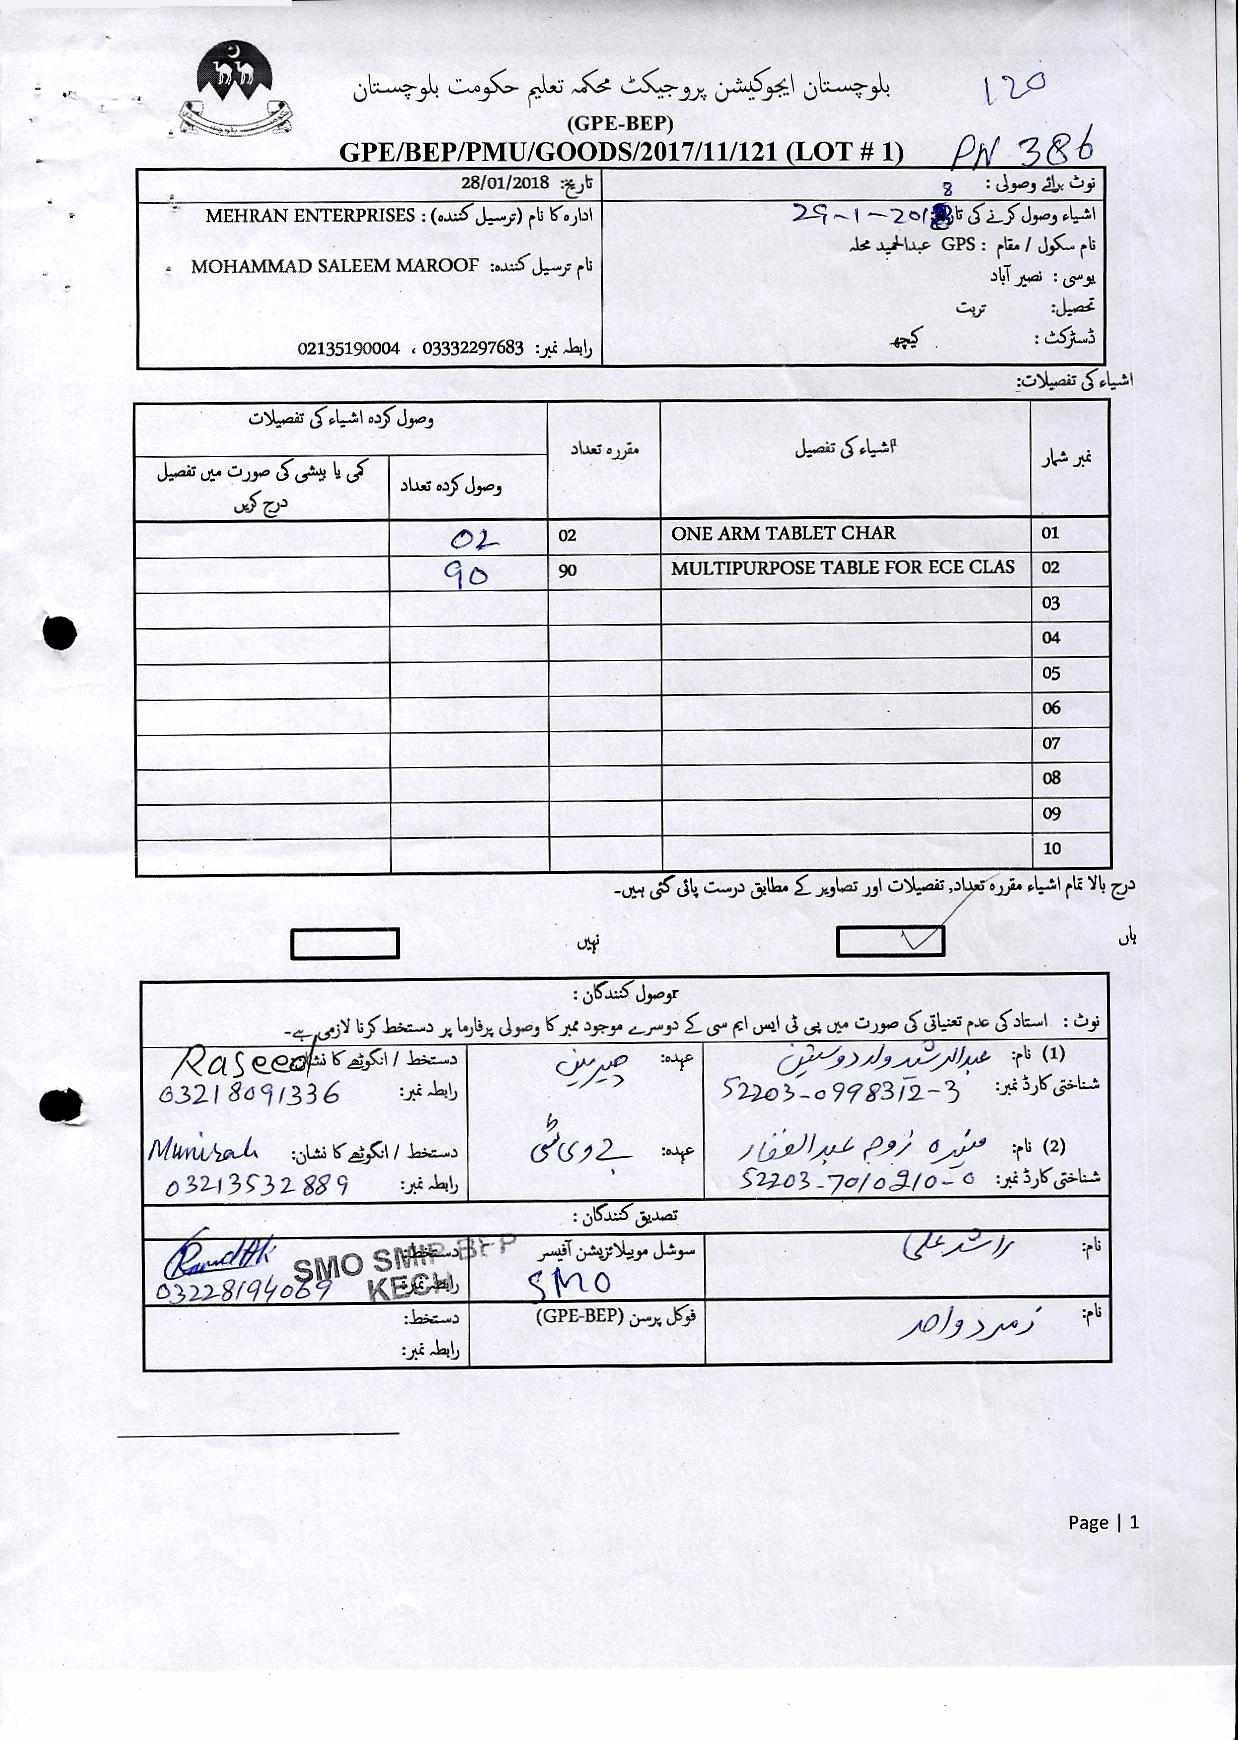 بلوچستان ایجوکیشن پروجیکٹ محکمہ تعلیم حکومت بلوچستان
120
(GPE-BEP)
GPE/BEP/PMU/GOODS/2017/11/121 (LOT # 1)
PN 386
نوٹ برائے وصولی :
تاریخ: 28/01/2018
اشیاء وصول کرنے کی تاریخ 29-1-2018
ادارہ کا نام (ترسیل کنندہ) : MEHRAN ENTERPRISES
نام سکول / مقام : GPS عبدالحمید محلہ
نام ترسیل کنندہ: MOHAMMAD SALEEM MAROOF
یوسی : نصیر آباد
تحصیل: تربت
ڈسٹرکٹ : کیچ
رابطہ نمبر: 03332297683 ، 02135190004
اشیاء کی تفصیلات:
نمبر شمار
اشیاء کی تفصیل
مقررہ تعداد
وصول کردہ اشیاء کی تفصیلات
وصول کردہ تعداد
کمی یا بیشی کی صورت میں تفصیل درج کریں
01 ONE ARM TABLET CHAR 02 02
02 MULTIPURPOSE TABLE FOR ECE CLAS 90 90
03
04
05
06
07
08
09
10
درج بالا تمام اشیاء مقررہ تعداد, تفصیلات اور تصاویر کے مطابق درست پائی گئی ہیں۔
ہاں
نہیں
وصول کنندگان :
نوٹ : استاد کی عدم تعیناتی کی صورت میں پی ٹی ایس ایم سی کے دوسرے موجود ممبر کا وصولی پرفارما پر دستخط کرنا لازمی ہے۔
(1) نام: عبدالرشید ولد دوستین عہدہ: چیرمین دستخط / انگوٹھے کا نشان: Raseed
شناختی کارڈ نمبر: 52203-0998312-3 رابطہ نمبر: 03218091336
(2) نام: منیرہ زوجہ عبدالغفار عہدہ: جے وی ٹی دستخط / انگوٹھے کا نشان: Munirah
شناختی کارڈ نمبر: 52203-7010210-0 رابطہ نمبر: 03213532889
تصدیق کنندگان :
نام: راشد علی سوشل موبیلائزیشن آفیسر SMO دستخط:
رابطہ نمبر: 03228194069
SMO SMIP BEP
KECH
نام: زمرد واحد فوکل پرسن (GPE-BEP) دستخط:
رابطہ نمبر:
Page | 1